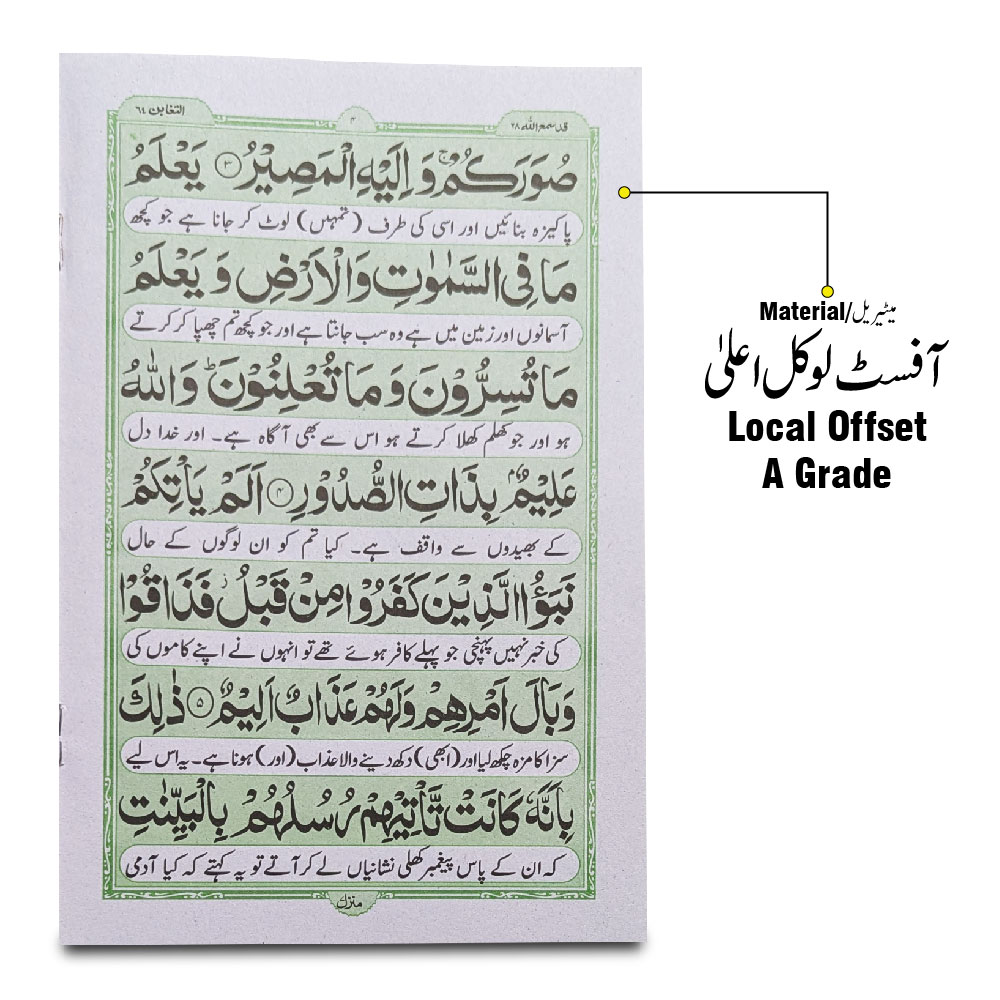 قد سمع الله ٢٨
٣
التغابن ٦٤
صُوَرَكُمْ ۚ وَ اِلَیْهِ الْمَصِیْرُ ۝٣ یَعْلَمُ
پاکیزہ بنائیں اور اسی کی طرف (تمہیں) لوٹ کر جانا ہے جو کچھ
مَا فِی السَّمٰوٰتِ وَ الْاَرْضِ وَ یَعْلَمُ
آسمانوں اور زمین میں ہے وہ سب جانتا ہے اور جو کچھ تم چھپا کر کرتے
مَا تُسِرُّوْنَ وَ مَا تُعْلِنُوْنَ ؕ وَ اللّٰهُ
ہو اور جو کھلم کھلا کرتے ہو اس سے بھی آگاہ ہے۔ اور خدا دل
عَلِیْمٌۢ بِذَاتِ الصُّدُوْرِ ۝٤ اَلَمْ یَاْتِكُمْ
کے بھیدوں سے واقف ہے۔ کیا تم کو ان لوگوں کے حال
نَبَؤُا الَّذِیْنَ كَفَرُوْا مِنْ قَبْلُ ؗ فَذَاقُوْا
کی خبر نہیں پہنچی جو پہلے کافر ہوئے تھے تو انہوں نے اپنے کاموں کی
وَبَالَ اَمْرِهِمْ وَ لَهُمْ عَذَابٌ اَلِیْمٌ ۝٥ ذٰلِكَ
سزا کا مزہ چکھ لیا اور (ابھی) دکھ دینے والا عذاب (اور) ہونا ہے۔ یہ اس لیے
بِاَنَّهٗ كَانَتْ تَّاْتِیْهِمْ رُسُلُهُمْ بِالْبَیِّنٰتِ
کہ ان کے پاس پیغمبر کھلی نشانیاں لے کر آتے تو یہ کہتے کہ کیا آدمی
Material/میٹیریل
آفسٹ لوکل اعلیٰ
Local Offset
A Grade